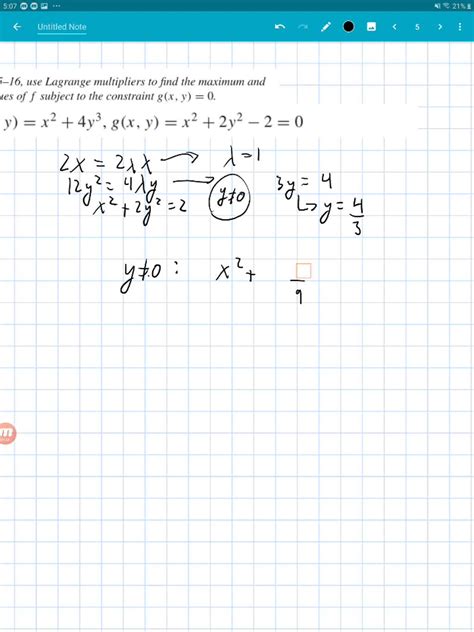 5:07 21%
Untitled Note 5
5–16, use Lagrange multipliers to find the maximum and
ues of f subject to the constraint g(x, y) = 0.
y) = x² + 4y³, g(x, y) = x² + 2y² − 2 = 0
2x = 2λx → λ = 1
12y² = 4λy → y≠0 3y = 4
x² + 2y² = 2 ↳ y = 4/3
y≠0 : x² + □/9
m